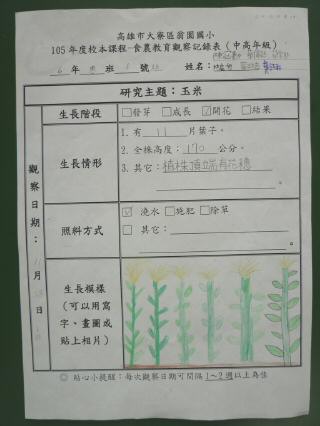 高雄市大寮區翁園國小
105年度校本課程-食農教育觀察記錄表(中高年級)
6年 班 號 姓名:
研究主題:玉米
生長階段 □發芽 □成長 ☑開花 □結果
觀察日期: 月 日
生長情形
1. 有 11 片葉子。
2. 全株高度: 170 公分。
3. 其它:植株頂端有花穗
。
照料方式
☑ 澆水 □施肥 □除草
□ 其它:
。
生長模樣
(可以用寫
字、畫圖或
貼上相片)
◎ 貼心小提醒:每次觀察日期可間隔1~2週以上為佳